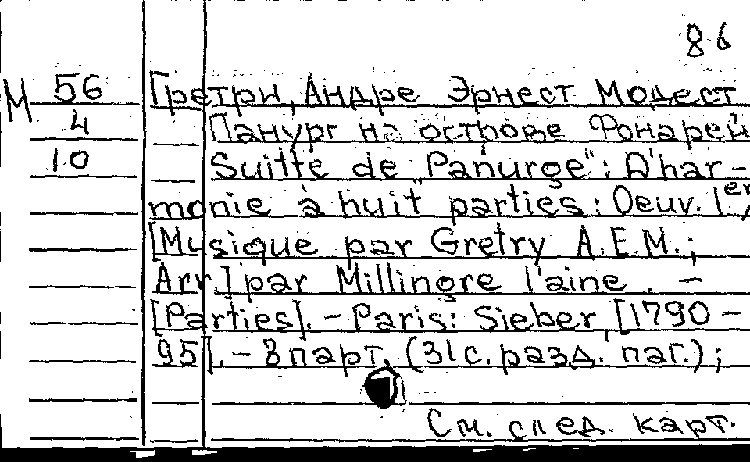 86
М 56
4
10
Гретри, Андре Эрнест Модест
Панург на острове Фонарей
Suitte de "Panurge": D'har-
monie à huit parties: Oeuv. 1er/
[Musique par Gretry A.E.M.;
Arr.] par Millingre l'aine. –
[Parties]. – Paris: Sieber, [1790-
95]. – 8 парт. (31 с. разд. паг.);
См. след. карт.